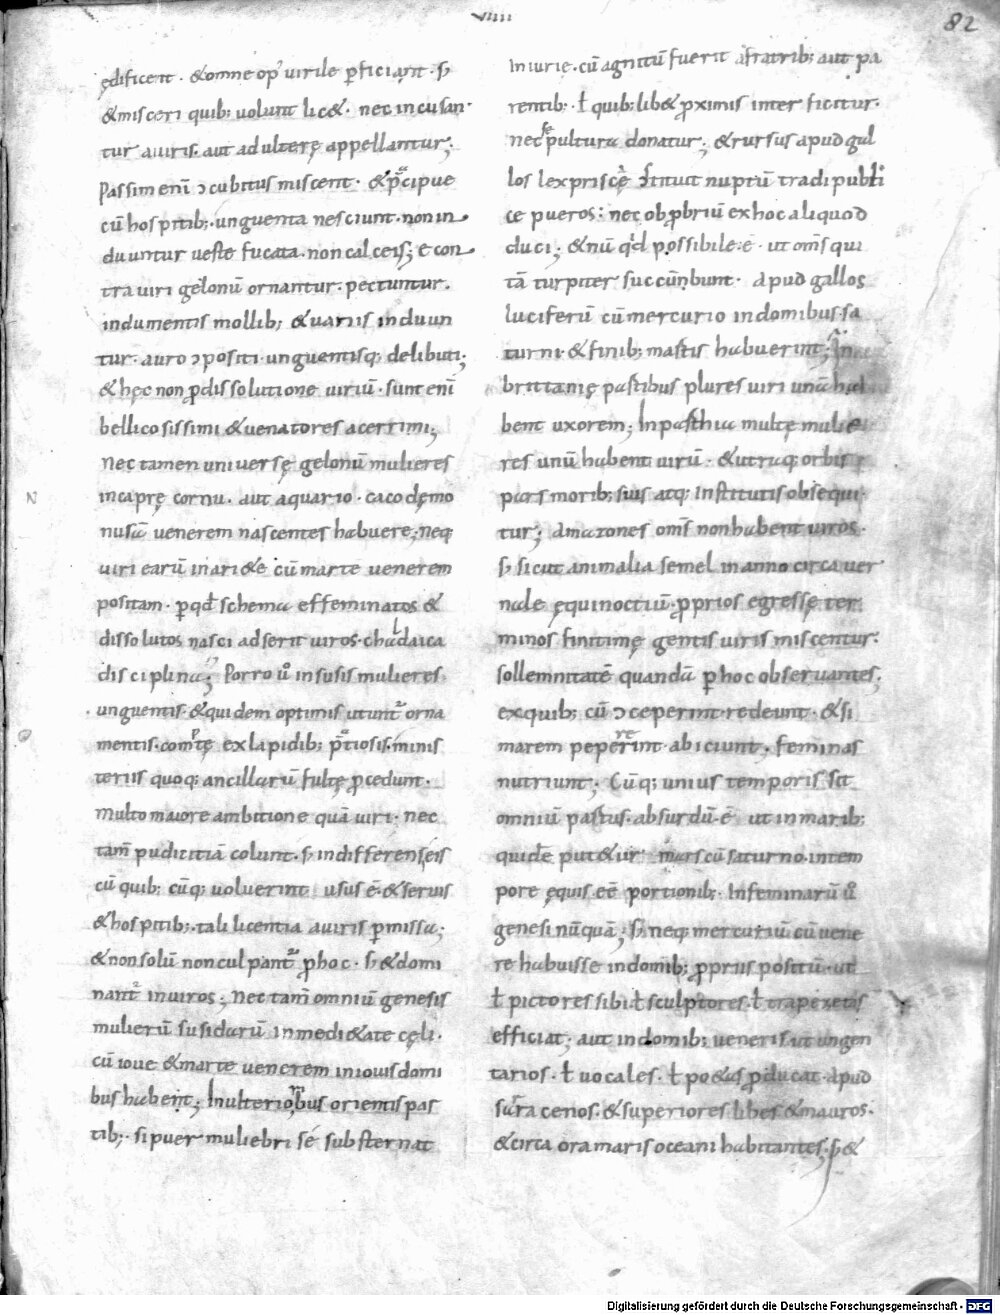 VIIII
82
ędificent · &omne op' uirile ꝑficiant · s̄
&misceri quib; uolunt lic& · nec incusan·
tur auiris · aut adulterę appellantur;
Passim enī ↄcubitus miscent · &p̄cipue
cū hospitib; · unguenta nesciunt · non in
duuntur ueste fucata · non calceis; e con
tra uiri gelonū ornantur · pectuntur ·
indumentis mollib; &uariis induun
tur · auro ↄpositi · unguentisq; delibuti;
&hęc non ꝓ dissolutione uiriū · sunt enī
bellicosissimi &uenatores acerrimi;
Nec tamen uniuersę gelonū mulieres
in caprę cornu · aut aquario · cacodęmo
nusā uenerem nascentes habuere; neq
uiri earū in ari&e cū marte uenerem
positam · ꝑ qd̄ schema effeminatos &
dissolutos nasci adserit uiros · chaldaica
disciplina; Porro ů in susis mulieres
unguentis &quidem optimis utunt̄ orna
mentis · comptę ex lapidib; p̄tiosis · minis
teriis quoq; ancillarū fultę ꝓcedunt ·
multo maiore ambitione quā uiri · nec
tam̄ pudicitiā colunt · s̄ indifferens eis
cū quib; cūq; uoluerint usus ē · &seruis
&hospitib; · tali licentia auiris ꝑmissa;
&non solū non culpant̄ ꝓ hoc · s̄ &domi
nant̄ in uiros; Nec tam̄ omniū genesis
mulierū susidarū in medi&ate cęli ·
cū ioue &marte uenerem in iouis domi
bus habent; In ulterioribus orientis par
tib; · si puer muliebri se substernat
iniurie · cū agnitū fuerit afratrib; aut pa
rentib; · ł quib; lib& ꝓximis interficitur ·
nec sepultura donatur; &rursus apud gal
los lex priscę ↄstituit nuptū tradi publi
ce pueros: nec obꝓbriū ex hoc aliquod
duci; &nū qd̄ possibile · ē · ut om̄s qui
tā turpiter succūnbunt · apud gallos
luciferū cū mercurio in domibus sa
turni · &finib; martis habuerint; In
brittanię partibus plures uiri unā ha
bent uxorem; In parthia multę mulie
res unū habent uirū · &utraq; orbis
pars morib; suis atq; institutis obsequi
tur; Amazones om̄s non habent uiros ·
s̄ sicut animalia semel in anno circa uer
nale ęquinoctiū · ꝓprios egressę ter
minos finitimę gentis uiris miscentur ·
sollemnitatē quandā ꝑ hoc obseruantes;
ex quib; cū ↄceperint redeunt · &si
marem pepererint abiciunt · feminas
nutriunt; Cūq; unius temporis sit
omniū partus · absurdū · ē ut in marib;
quidē put&ur mars cū saturno · in tem
pore ęquis eē portionib; · In feminarū ů
genesi nūquā; s̄ neq; mercuriū cū uene
re habuisse in domib; ꝓpriis positū · ut
ł pictores sibi ł sculptores · ł trapezetas
efficiat; aut in domib; ueneris ut ungen
tarios · ł uocales · ł po&as ꝓducat · apud
sarracenos · &superiores libes &mauros ·
&circa ora maris oceani habitantes; s̄ &
N
Digitalisierung gefördert durch die Deutsche Forschungsgemeinschaft - DFG